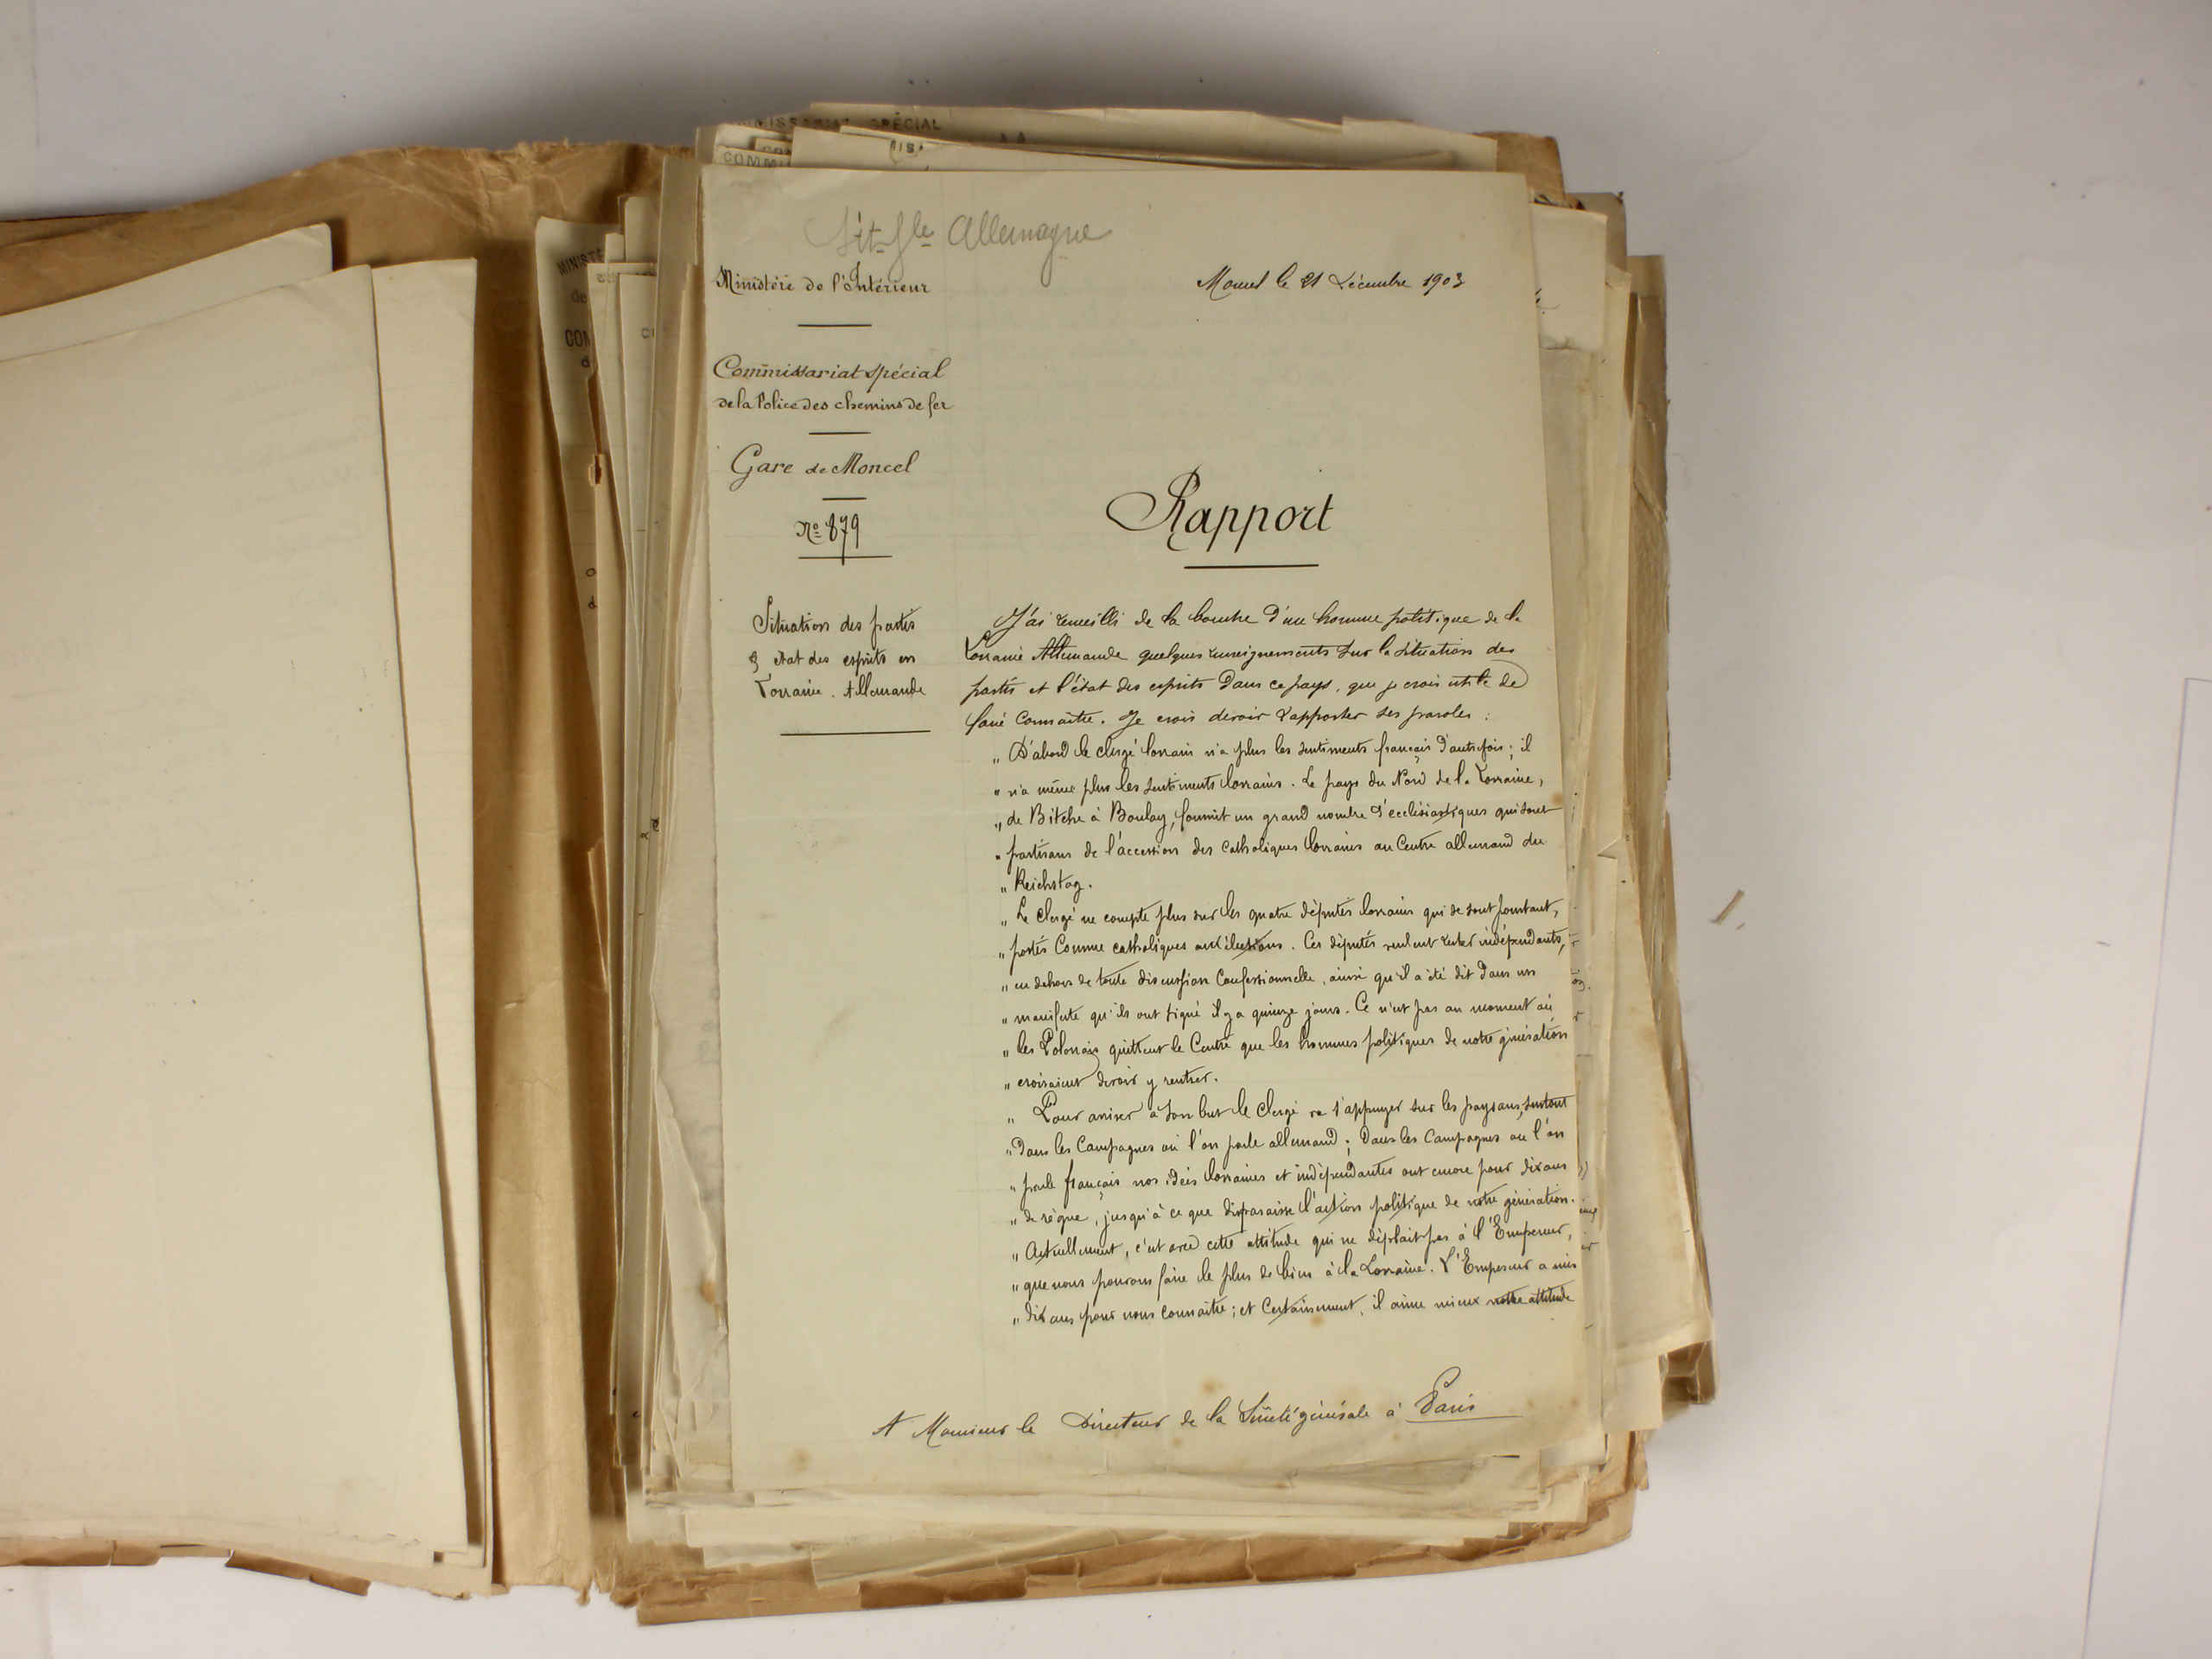 Sit. Gle Allemagne
Ministère de l'Intérieur
Moncel le 21 Décembre 1903
Commissariat spécial
de la Police des chemins de fer
Gare de Moncel
No 879
Rapport
Situation des partis
& état des esprits en
Lorraine Allemande
J'ai recueilli de la bouche d'un homme politique de la
Lorraine Allemande quelques renseignements sur la situation des
partis et l'état des esprits dans ce pays, que je crois utile de
faire connaître. Je crois devoir rapporter ses paroles :
" D'abord le clergé lorrain n'a plus les sentiments français d'autrefois ; il
" n'a même plus les sentiments lorrains. Le pays du Nord de la Lorraine,
" de Bitche à Boulay, fournit un grand nombre d'ecclésiastiques qui sont
" partisans de l'accession des catholiques lorrains au Centre allemand du
" Reichstag.
" Le clergé ne compte plus sur les quatre députés lorrains qui se sont pourtant,
" portés comme catholiques aux élections. Ces députés veulent rester indépendants,
" en dehors de toute discussion confessionnelle, ainsi qu'il a été dit dans un
" manifeste qu'ils ont signé il y a quinze jours. Ce n'est pas au moment où
" les Polonais quittent le Centre que les hommes politiques de notre génération
" croiraient devoir y rentrer.
" Pour arriver à son but le clergé va s'appuyer sur les paysans, surtout
" dans les campagnes où l'on parle allemand ; dans les campagnes où l'on
" parle français nos idées lorraines et indépendantes ont encore pour dix ans
" de règne, jusqu'à ce que disparaisse l'action politique de notre génération.
" Actuellement, c'est avec cette attitude qui ne déplait pas à l'Empereur,
" que nous pouvons faire le plus de bien à la Lorraine. L'Empereur a mis
" dix ans pour nous connaître ; et certainement, il aime mieux notre attitude
A Monsieur le Directeur de la Sûreté générale à Paris
COMMISSARIAT SPÉCIAL
COMMI
MINISTÈ
de
COM